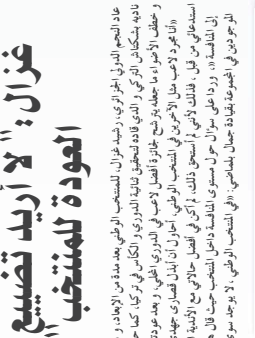 غزال: "لا أريد تضييع
العودة للمنتخب"
عاد النجم الدولي الجزائري، رشيد غزال، للمنتخب الوطني بعد مدة من الإبعاد، و
ناديه بشكتاش التركي و الذي قاده لتحقيق ثنائية الدوري و الكأس في تركيا، كما
و خطف الأضواء ما جعله يترشح لجائزة أفضل لاعب في الدوري المحلي، و بعد عودته
«أنا مجرد لاعب مثل الآخرين في المنتخب الوطني، أحاول أن أبذل قصارى جهدي
استدعائي من قبل، فذلك لأنني لم أستحق ذلك، لم أكن في أفضل حالاتي مع الأندية
إلى المنافسة «، و ردا على سؤال حول مستوى المنافسة داخل المنتخب حيث قال
الموجودين في المجموعة بقيادة جمال بلماضي. «في المنتخب الوطني، لا يوجد سوى